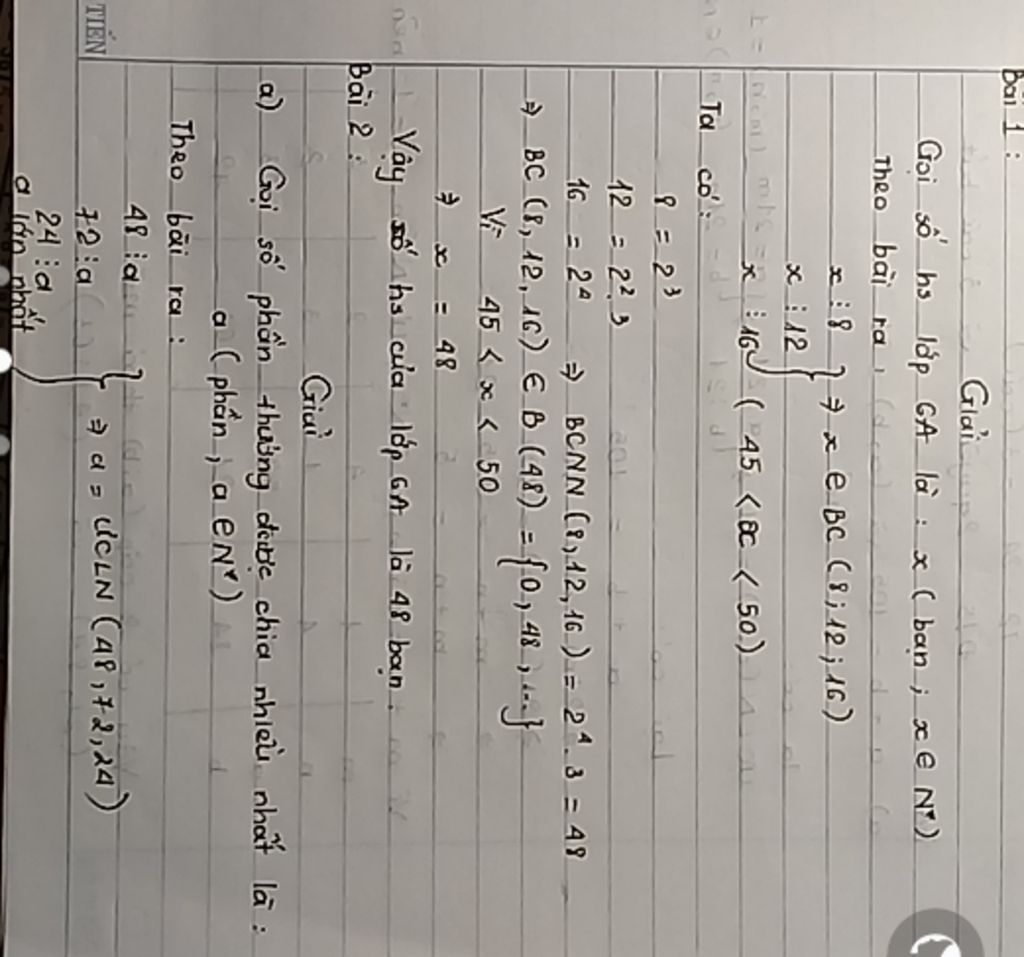 Bài 1 :
Giải
Gọi số hs lớp 6A là : x ( bạn ; x ∈ N* )
Theo bài ra ,
x ⋮ 8
x ⋮ 12 } ⇒ x ∈ BC ( 8 ; 12 ; 16 )
x ⋮ 16 ( 45 < x < 50 )
Ta có :
8 = 2³
12 = 2² . 3
16 = 2⁴ ⇒ BCNN ( 8 , 12 , 16 ) = 2⁴ . 3 = 48
⇒ BC ( 8 , 12 , 16 ) ∈ B ( 48 ) = { 0 , 48 , ... }
Vì 45 < x < 50
⇒ x = 48
Vậy số hs của lớp 6A là 48 bạn .
Bài 2 :
Giải
a) Gọi số phần thưởng được chia nhiều nhất là :
a ( phần , a ∈ N* )
Theo bài ra :
48 ⋮ a
72 ⋮ a } ⇒ a = ƯCLN ( 48 , 72 , 24 )
24 ⋮ a
a lớn nhất
TIẾN